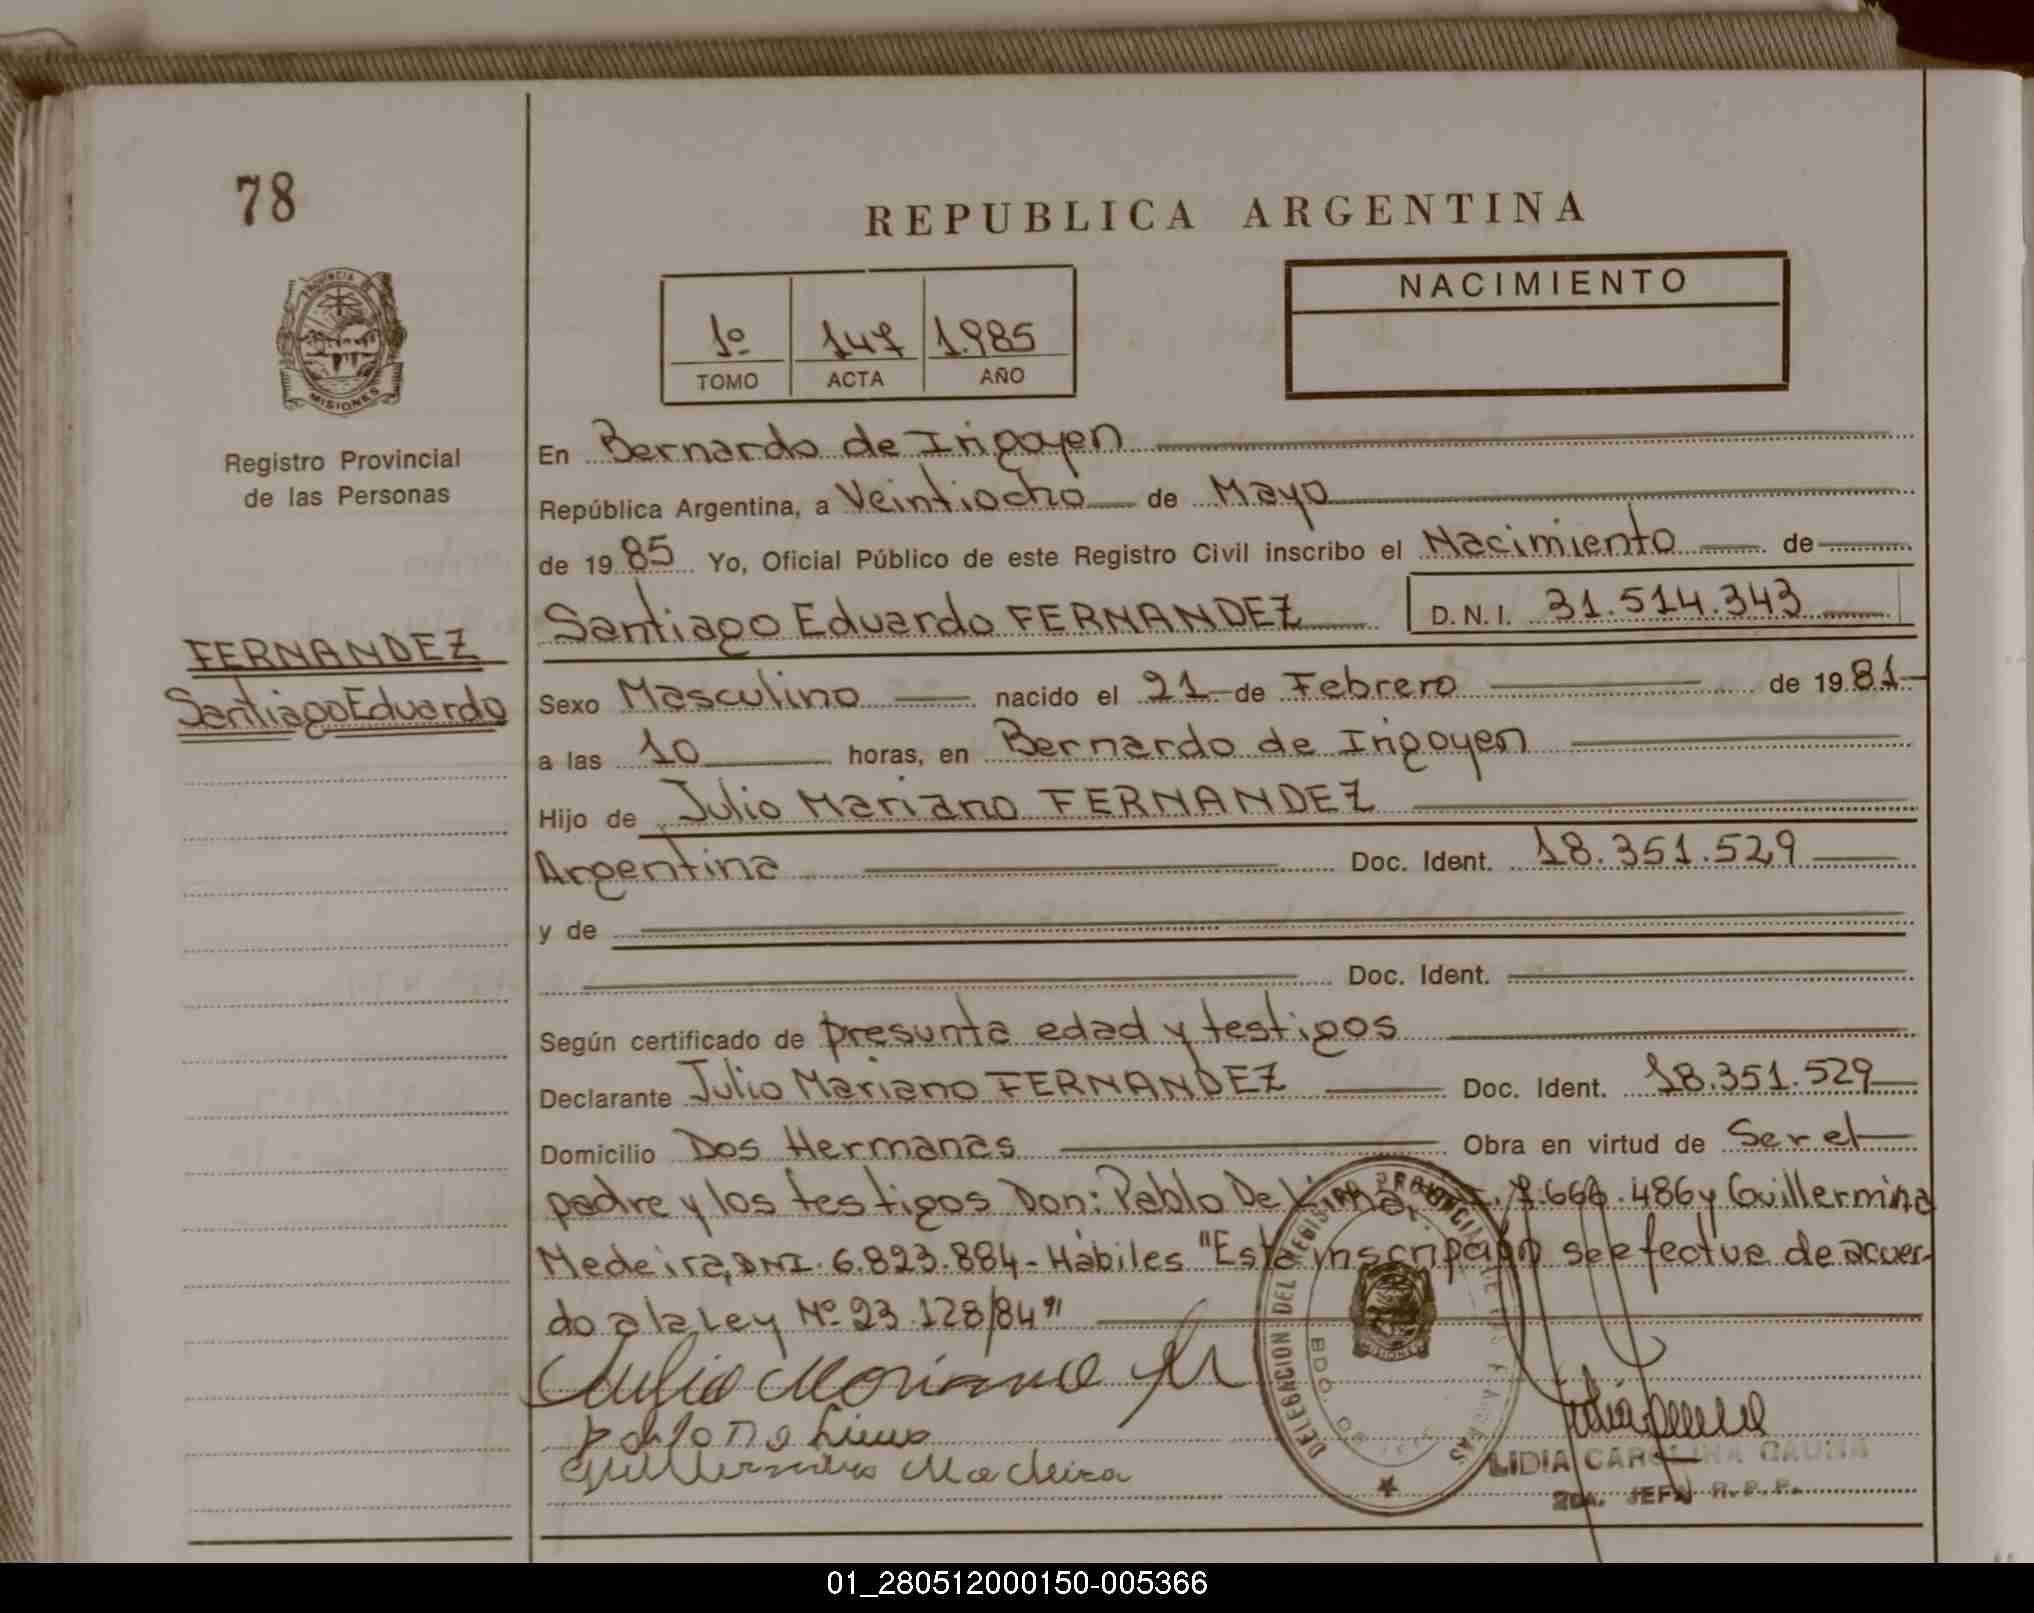 78
REPUBLICA ARGENTINA
PROVINCIA DE
MISIONES
1º 147 1.985
TOMO ACTA AÑO
NACIMIENTO
Registro Provincial
de las Personas
FERNANDEZ
Santiago Eduardo
En Bernardo de Irigoyen
República Argentina, a Veintiocho de Mayo
de 1985 Yo, Oficial Público de este Registro Civil inscribo el Nacimiento de
Santiago Eduardo FERNANDEZ D.N.I. 31.514.343
Sexo Masculino nacido el 21 de Febrero de 1981
a las 10 horas, en Bernardo de Irigoyen
Hijo de Julio Mariano FERNANDEZ
Argentina Doc. Ident. 18.351.529
y de
Doc. Ident.
Según certificado de presunta edad y testigos
Declarante Julio Mariano FERNANDEZ Doc. Ident. 18.351.529
Domicilio Dos Hermanas Obra en virtud de Ser el
padre y los testigos Don: Pablo De Lima, 486 y Guillermina
Medeira, DNI. 6.823.884 - Hábiles "Esta inscripción se efectue de acuer-
do a la Ley Nº 23.128/84"
Julio Mariano
Pablo De Lima
Madeira
DELEGACION DEL REGISTRO PROVINCIAL DE LAS PERSONAS
BDO. DE
MISIONES
LIDIA CAROLINA GAUNA
2da. JEFA R.P.P.
01_280512000150-005366